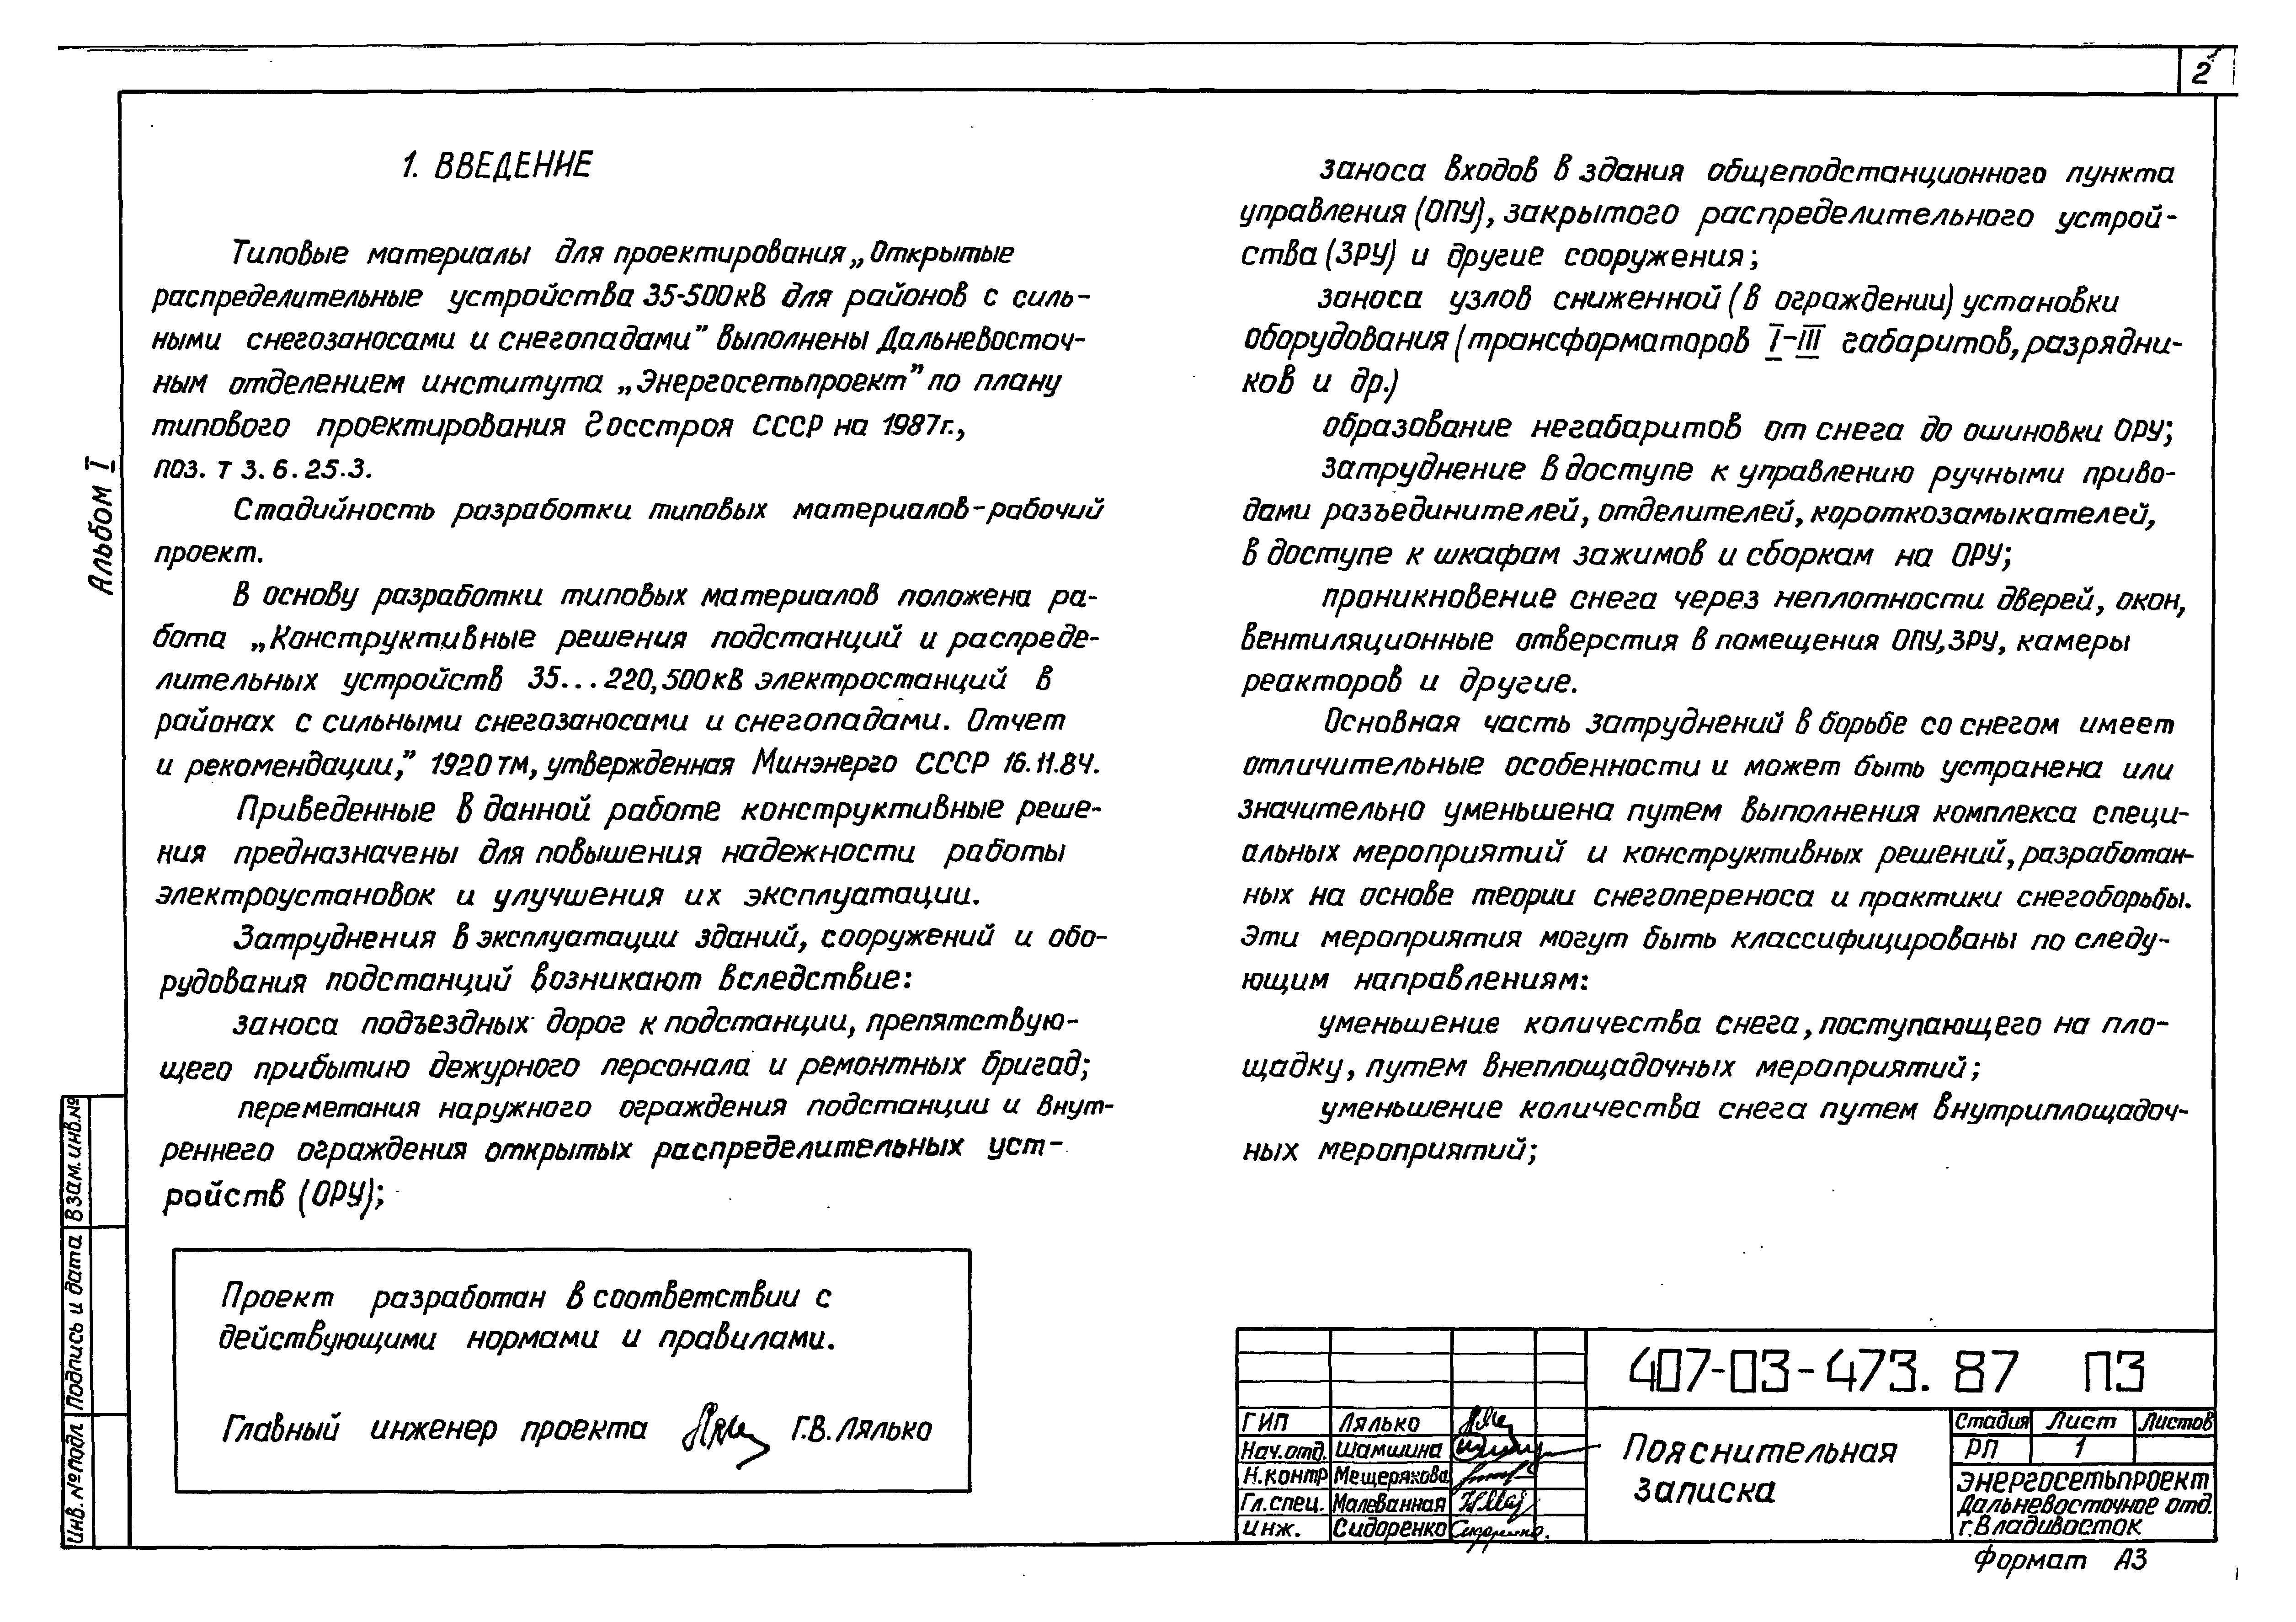 2
1. ВВЕДЕНИЕ
Типовые материалы для проектирования „Открытые
распределительные устройства 35-500кВ для районов с силь-
ными снегозаносами и снегопадами” выполнены Дальневосточ-
ным отделением института „Энергосетьпроект” по плану
типового проектирования Госстроя СССР на 1987г.,
поз. т 3.6.25.3.
Стадийность разработки типовых материалов-рабочий
проект.
В основу разработки типовых материалов положена ра-
бота „Конструктивные решения подстанций и распреде-
лительных устройств 35...220,500кВ электростанций в
районах с сильными снегозаносами и снегопадами. Отчет
и рекомендации,” 1920тм, утвержденная Минэнерго СССР 16.11.84.
Приведенные в данной работе конструктивные реше-
ния предназначены для повышения надежности работы
электроустановок и улучшения их эксплуатации.
Затруднения в эксплуатации зданий, сооружений и обо-
рудования подстанций возникают вследствие:
заноса подъездных дорог к подстанции, препятствую-
щего прибытию дежурного персонала и ремонтных бригад;
переметания наружного ограждения подстанции и внут-
реннего ограждения открытых распределительных уст-
ройств (ОРУ);
Проект разработан в соответствии с
действующими нормами и правилами.
Главный инженер проекта Г.В. Лялько
заноса входов в здания общеподстанционного пункта
управления (ОПУ), закрытого распределительного устрой-
ства (ЗРУ) и другие сооружения;
заноса узлов сниженной (в ограждении) установки
оборудования (трансформаторов I-III габаритов, разрядни-
ков и др.)
образование негабаритов от снега до ошиновки ОРУ;
затруднение в доступе к управлению ручными приво-
дами разъединителей, отделителей, короткозамыкателей,
в доступе к шкафам зажимов и сборкам на ОРУ;
проникновение снега через неплотности дверей, окон,
вентиляционные отверстия в помещения ОПУ, ЗРУ, камеры
реакторов и другие.
Основная часть затруднений в борьбе со снегом имеет
отличительные особенности и может быть устранена или
значительно уменьшена путем выполнения комплекса специ-
альных мероприятий и конструктивных решений, разработан-
ных на основе теории снегопереноса и практики снегоборьбы.
Эти мероприятия могут быть классифицированы по следу-
ющим направлениям:
уменьшение количества снега, поступающего на пло-
щадку, путем внеплощадочных мероприятий;
уменьшение количества снега путем внутриплощадоч-
ных мероприятий;
Альбом I
Взам. инв. №
Подпись и дата
Инв. № подл.
407-03-473.87 ПЗ
ГИП Лялько
Нач.отд. Шамшина
Н.контр Мещерякова
Гл.спец. Малеванная
Инж. Сидоренко Сидоренко.
Пояснительная
записка
Стадия Лист Листов
РП 1
Энергосетьпроект
Дальневосточное отд.
г.Владивосток
Формат А3